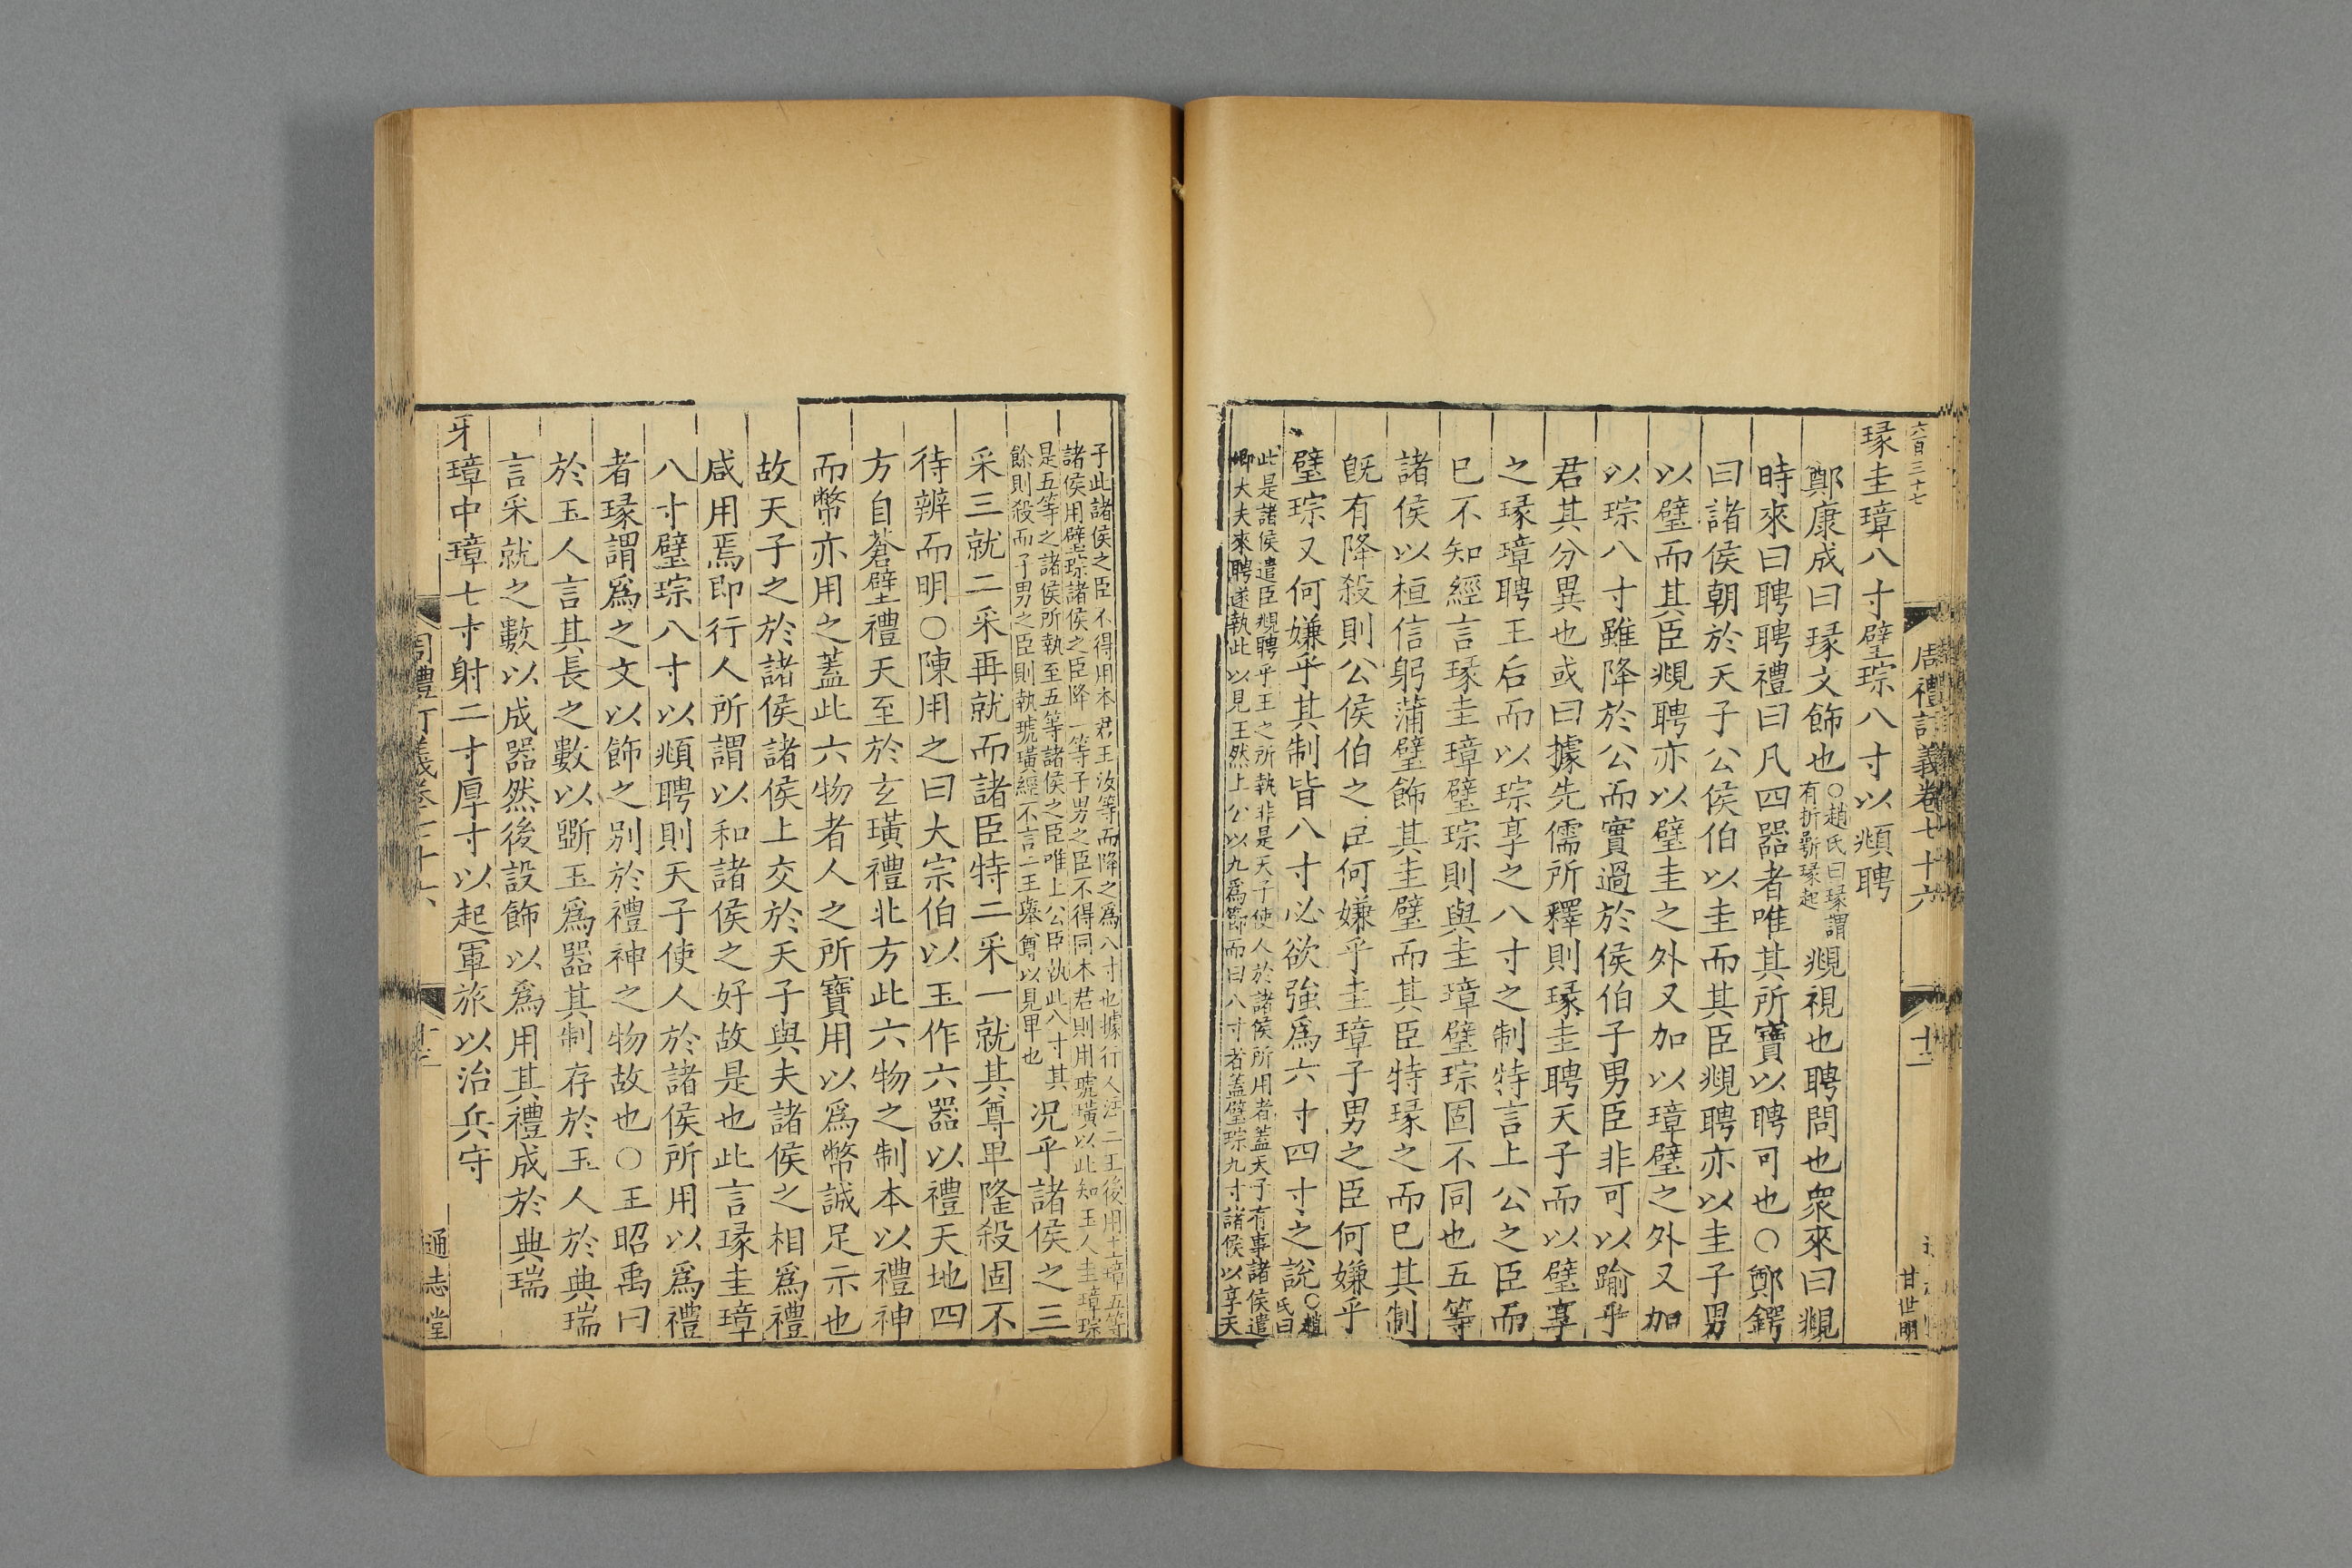 六百三十七
周禮訂義卷七十六
十二
甘世明
瑑圭璋八寸璧琮八寸以頫聘
鄭康成曰瑑文飾也
○趙氏曰瑑謂
有折鄂瑑起
覜視也聘問也衆來曰覜
時來曰聘聘禮曰凡四器者唯其所寶以聘可也○鄭鍔
曰諸侯朝於天子公侯伯以圭而其臣覜聘亦以圭子男
以璧而其臣覜聘亦以璧圭之外又加以璋璧之外又加
以琮八寸雖降於公而實過於侯伯子男臣非可以踰乎
君其分異也或曰據先儒所釋則瑑圭聘天子而以璧享
之瑑璋聘王后而以琮享之八寸之制特言上公之臣而
已不知經言瑑圭璋璧琮則與圭璋璧琮固不同也五等
諸侯以桓信躬蒲璧飾其圭璧而其臣特瑑之而已其制
旣有降殺則公侯伯之臣何嫌乎圭璋子男之臣何嫌乎
璧琮又何嫌乎其制皆八寸必欲強爲六寸四寸之說
○趙
氏曰
此是諸侯遣臣覜聘乎王之所執非是天子使人於諸侯所用者蓋天子有事諸侯遣
卿大夫來聘遂執此以見王然上公以九爲節而曰八寸者蓋璧琮九寸諸侯以享天
子此諸侯之臣不得用本君王汝等而降之爲八寸也據行人注二王後用圭璋五等
諸侯用璧琮諸侯之臣降一等子男之臣不得同本君則用琥璜以此知玉人圭璋琮
是五等之諸侯所執至五等諸侯之臣唯上公臣執此八寸其
餘則殺而子男之臣則執琥璜經不言二王舉尊以見卑也
况乎諸侯之三
采三就二采再就而諸臣特二采一就其尊卑隆殺固不
待辨而明○陳用之曰大宗伯以玉作六器以禮天地四
方自蒼璧禮天至於玄璜禮北方此六物之制本以禮神
而幣亦用之蓋此六物者人之所寶用以爲幣誠足示也
故天子之於諸侯諸侯上交於天子與夫諸侯之相爲禮
咸用焉即行人所謂以和諸侯之好故是也此言瑑圭璋
八寸璧琮八寸以頫聘則天子使人於諸侯所用以爲禮
者瑑謂爲之文以飾之別於禮神之物故也○王昭禹曰
於玉人言其長之數以斲玉爲器其制存於玉人於典瑞
言采就之數以成器然後設飾以爲用其禮成於典瑞
牙璋中璋七寸射二寸厚寸以起軍旅以治兵守
通志堂